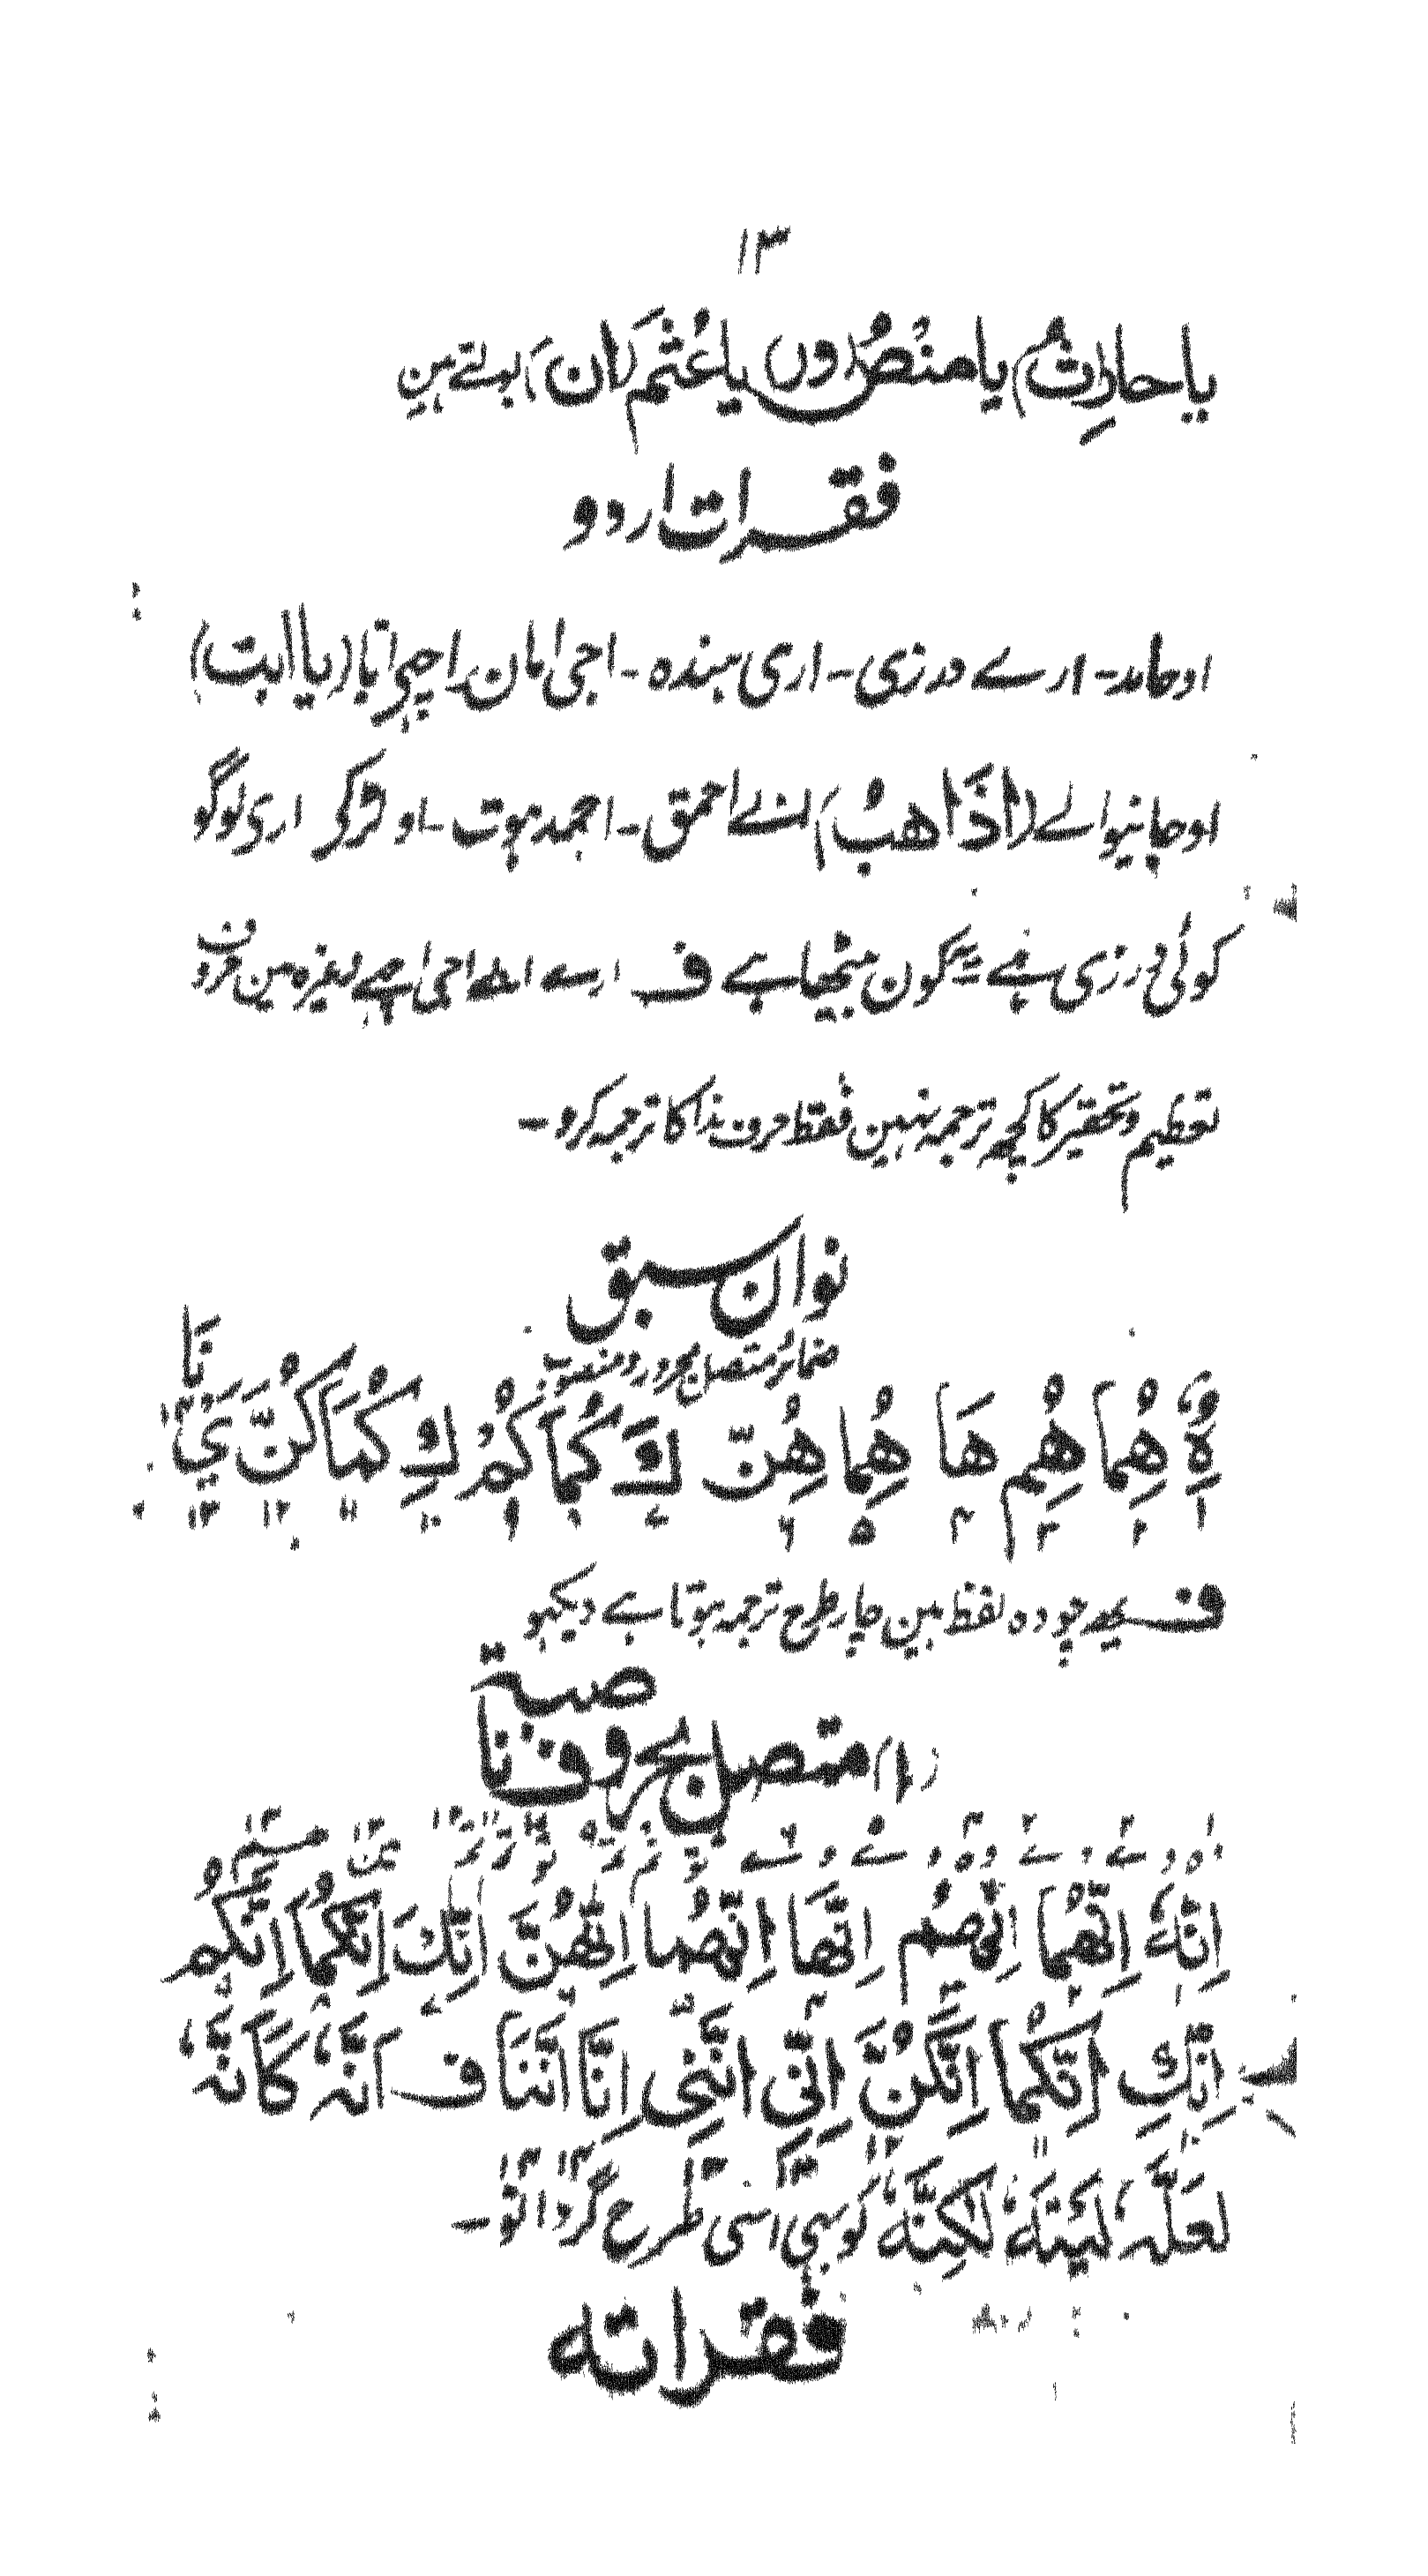 ۱۳
یا حارِثُ) یا منصُ(وں) یا عُثمَ(ان) بولتے ہین
فقرات اردو
او حامد۔ ارے درزی۔ اری ہندہ۔ اجی امان اچھے ابا (یا ابت)
او جانیوالے (اذَاهبُ) اے احمق۔ احمد ہوت۔ او لڑکی اری لوگو
کوئی درزی ہے کون بیٹھا ہے ف ارے اجی اچھے وغیرہ مین حرف
تعظیم و تحقیر کا کچھ ترجمہ نہین فقط حرف ندا کا ترجمہ کرو۔
نوان سبق
ضمائر متصل مجرور و منصوب
هُ هُما هُم هَا هُما هُنّ كَ كُما كُمْ كِ كُمَا كُنَّ يَ نَا
۱ ۲ ۳ ۴ ۵ ۶ ۷ ۸ ۹ ۱۰ ۱۱ ۱۲ ۱۳ ۱۴
ف یہہ چودہ لفظ ہین چار طرح ترجمہ ہوتا ہے دیکھو
(۱) متصل بحروف ناصبة
اِنَّهٗ اِنَّهُمَا اِنَّهُم اِنَّهَا اِنَّهُما اِنَّهُنَّ اِنَّكَ اِنَّكُمَا اِنَّكُمْ
اِنَّكِ اِنَّكُمَا اِنَّكُنَّ اِنِّي اِنَّنِي اِنَّا اِنَّنَا ف اَنَّهٗ كَاَنَّهٗ
لَعَلَّهٗ لَيْتَهٗ لٰكِنَّهٗ کو بھی اسی طرح گردانو۔
فقراته